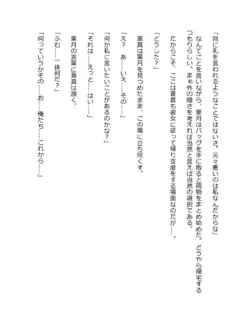 「別に礼を言われるようなことではないさ。元々悪いのは私なんだからな」
　なんてことを言いながら、葉月はバッグを手に取ると荷物をまとめ始めた。どうやら帰宅する
つもりらしい。まぁ外の暗さを考えれば当然と言えば当然の選択である。
　だからこそ、ここは蒼真も彼女に倣って帰り支度をする場面なのだが……。
「どうした？」
　蒼真は葉月を見つめたまま、この場に立ち尽くす。
「え？　あ……いえ、その……」
「何か私に言いたいことがあるのかな？」
「それは……えっと……はい……」
　葉月の言葉に蒼真は頷く。
「ふむ……一体何だ？」
「何っていうかその……お、俺たち……これから……」